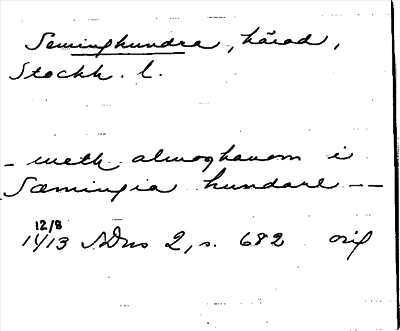 Seminghundra, härad,
Stockh. l.
- meth almoghanom i
Sæmingia hundare --
12/8
1413 SDns 2, s. 682 orig